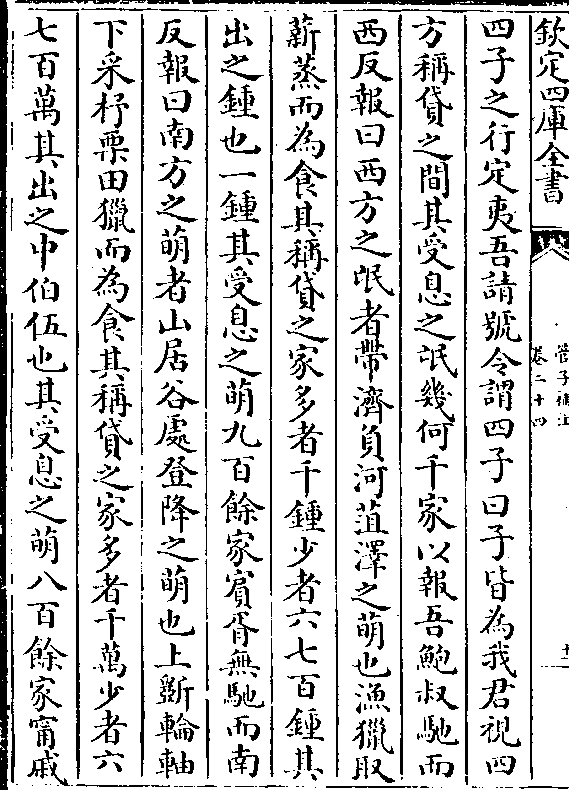 欽定四庫全書
管子補注
卷二十四
十二
四子之行定夷吾請號令謂四子曰子皆為我君視四
方稱貸之間其受息之氓幾何千家以報吾鮑叔馳而
西反報曰西方之氓者帶濟負河菹澤之萌也漁獵取
薪蒸而為食其稱貸之家多者千鍾少者六七百鍾其
出之鍾也一鍾其受息之萌九百餘家賓胥無馳而南
反報曰南方之萌者山居谷處登降之萌也上斲輪軸
下采杼栗田獵而為食其稱貸之家多者千萬少者六
七百萬其出之中伯伍也其受息之萌八百餘家甯戚